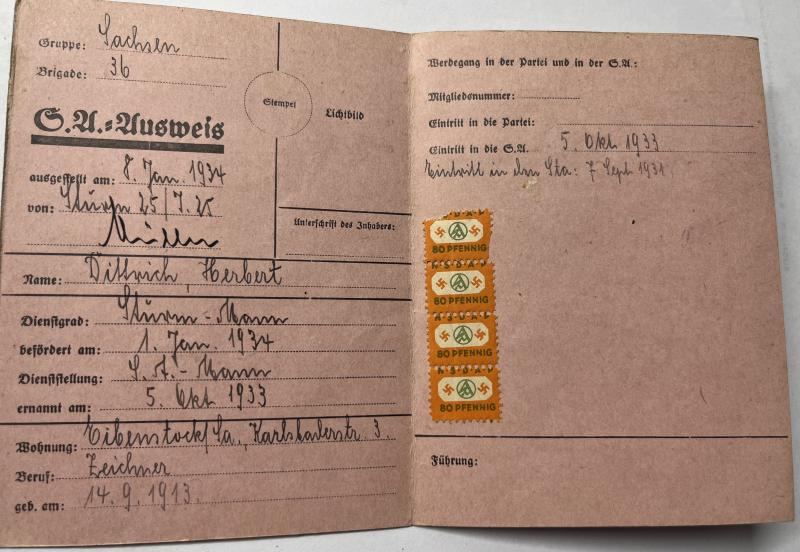 Gruppe: Sachsen
Brigade: 36
S.A.=Ausweis
ausgestellt am: 8. Jan. 1934
von: Sturm 25/J.25
Müller
Stempel
Lichtbild
Unterschrift des Inhabers:
Name: Dittrich, Herbert
Dienstgrad: Sturm-Mann
befördert am: 1. Jan. 1934
Dienststellung: S.A.-Mann
ernannt am: 5. Okt 1933
Wohnung: Eibenstock/Sa., Karlsbaderstr. 3.
Beruf: Zeichner
geb. am: 14.9.1913.
Werdegang in der Partei und in der S.A.:
Mitgliedsnummer:
Eintritt in die Partei:
Eintritt in die S.A. 5. Okt 1933
Eintritt in den Sta: 7 Sept 1931
N·S·D·A·P
80 PFENNIG
N·S·D·A·P
80 PFENNIG
N·S·D·A·P
80 PFENNIG
N·S·D·A·P
80 PFENNIG
Führung: